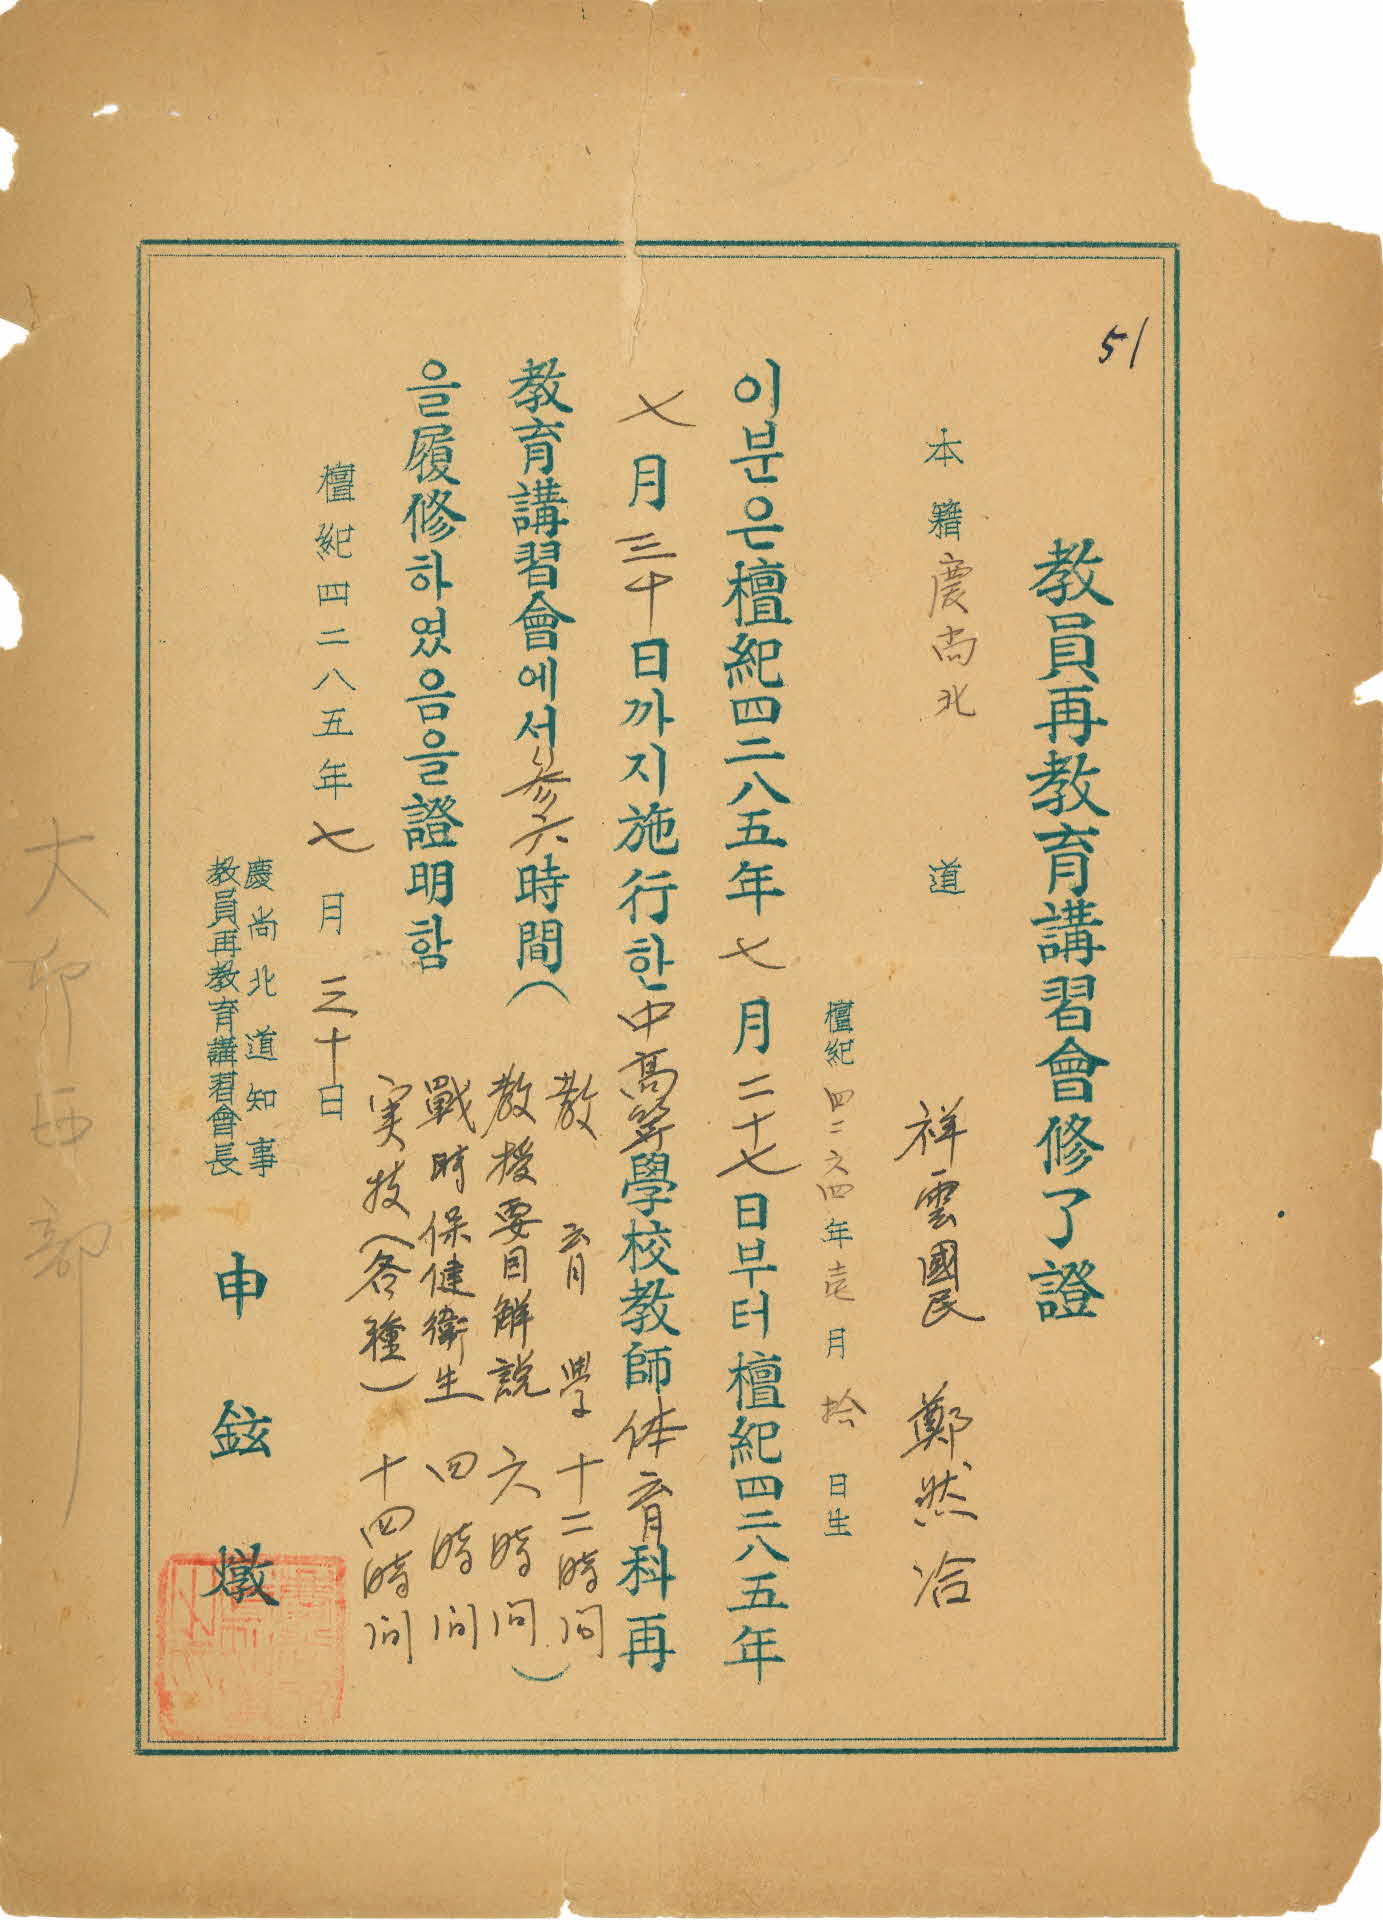 51
教員再教育講習會修了證
本籍慶尚北道
祥雲國民 鄭然冾
檀紀四二六四年壱月拾日生
이분은檀紀四二八五年七月二十七日부터檀紀四二八五年
七月三十日까지施行한中高等學校教師体育科再
教育講習會에서参六時間(
教育學 十二時间
教授要目解説 六時间)
戰時保健衛生 四時间
実技(各種) 十四時间
을履修하였음을證明함
檀紀四二八五年七月三十日
慶尚北道知事
教員再教育講習會長
申鉉燉
大邱西部